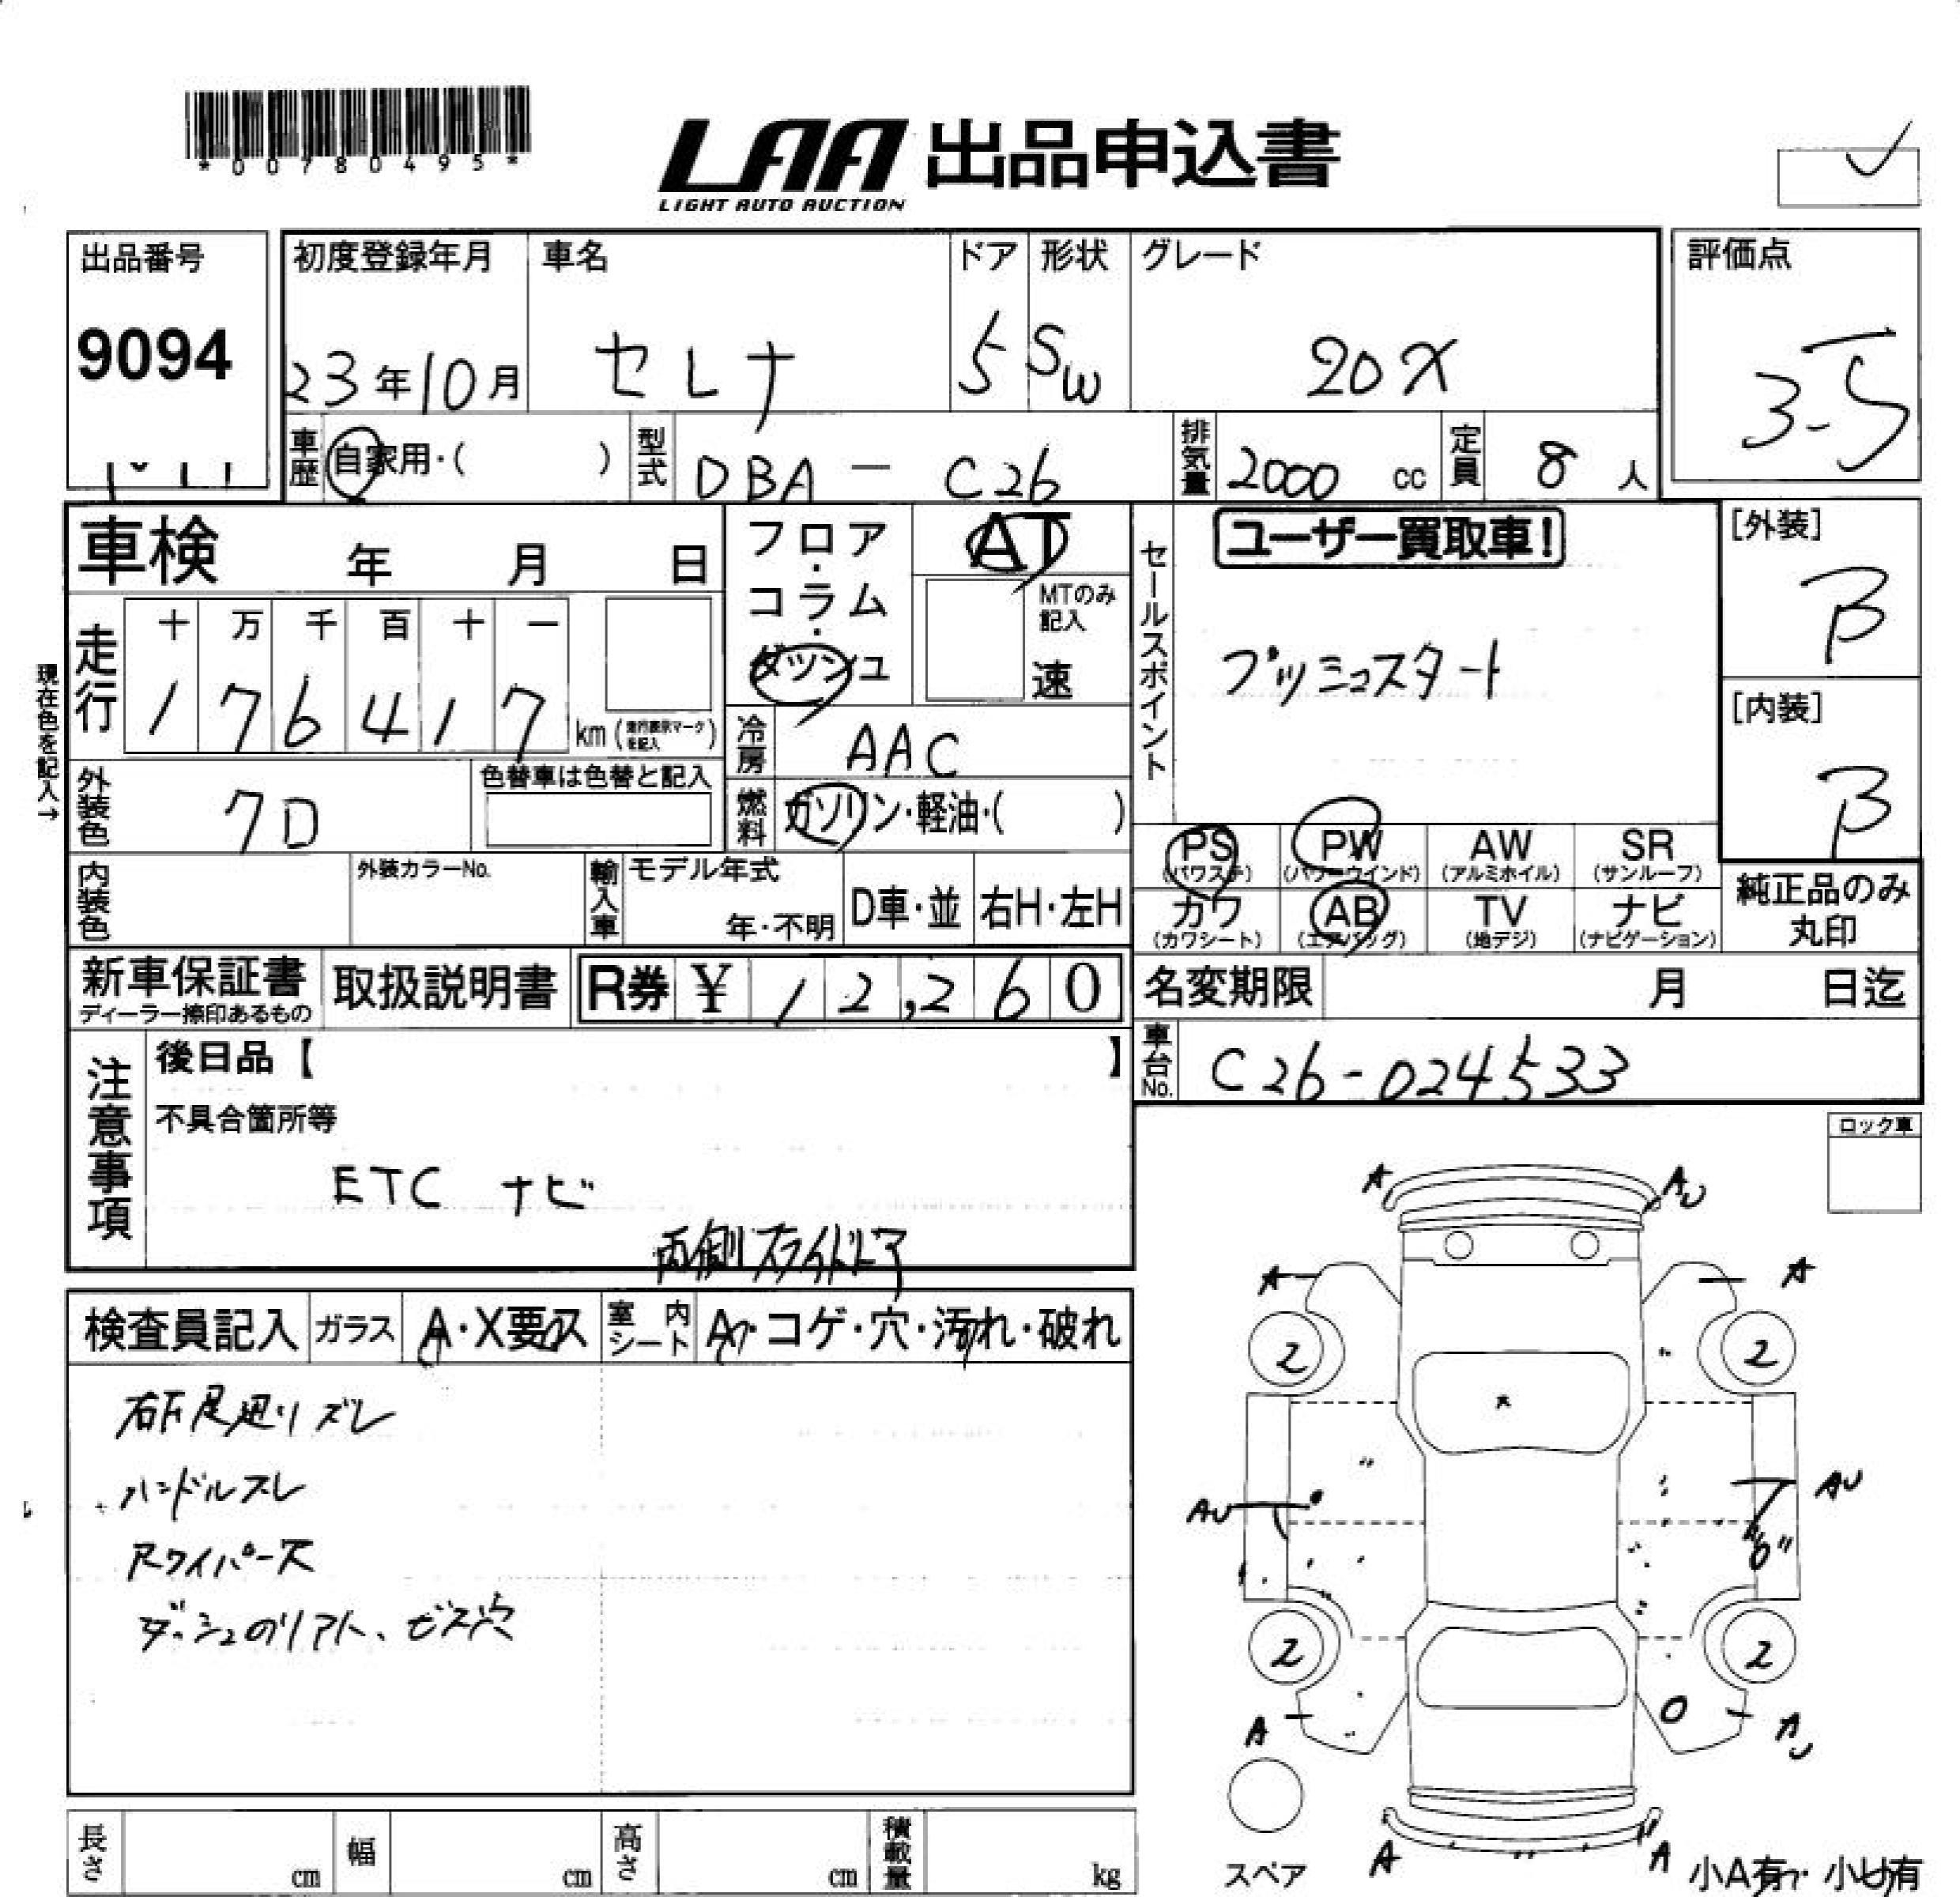 *00780495*
LAA 出品申込書
LIGHT AUTO AUCTION
出品番号
9094
初度登録年月
23年10月
車名
セレナ
ドア
5
形状
SW
グレード
20X
評価点
3-5
車歴
自家用・( )
型式
DBA - C26
排気量
2000 cc
定員
8 人
車検 年 月 日
フロア・コラム・ダッシュ
AT
MTのみ記入
速
セールスポイント
ユーザー買取車!
プッシュスタート
[外装]
B
[内装]
B
現在色を記入→
走行
十 万 千 百 十 一
1 7 6 4 1 7
km (走行表示マークを記入)
冷房
AAC
外装色
クロ
色替車は色替と記入
燃料
ガソリン・軽油・( )
PS (パワステ)
PW (パワーウインド)
AW (アルミホイル)
SR (サンルーフ)
カワ (カワシート)
AB (エアバッグ)
TV (地デジ)
ナビ (ナビゲーション)
純正品のみ丸印
内装色
外装カラーNo.
輸入車
モデル年式
年・不明
D車・並
右H・左H
新車保証書
ディーラー捺印あるもの
取扱説明書
R券 ¥ 12,260
名変期限 月 日迄
車台No.
C26-024533
注意事項
後日品【 】
不具合箇所等
ETC ナビ
両側スライドドア
ロック車
検査員記入
ガラス
A・X要ス
室内シート
A・コゲ・穴・汚れ・破れ
ハンドルスレ
Rワイパー欠
ビス穴
A
AU
A
A
2
2
AU
AU
2
2
A
AU
A
A
スペア
小A有・小U有
長さ cm
幅 cm
高さ cm
積載量 kg